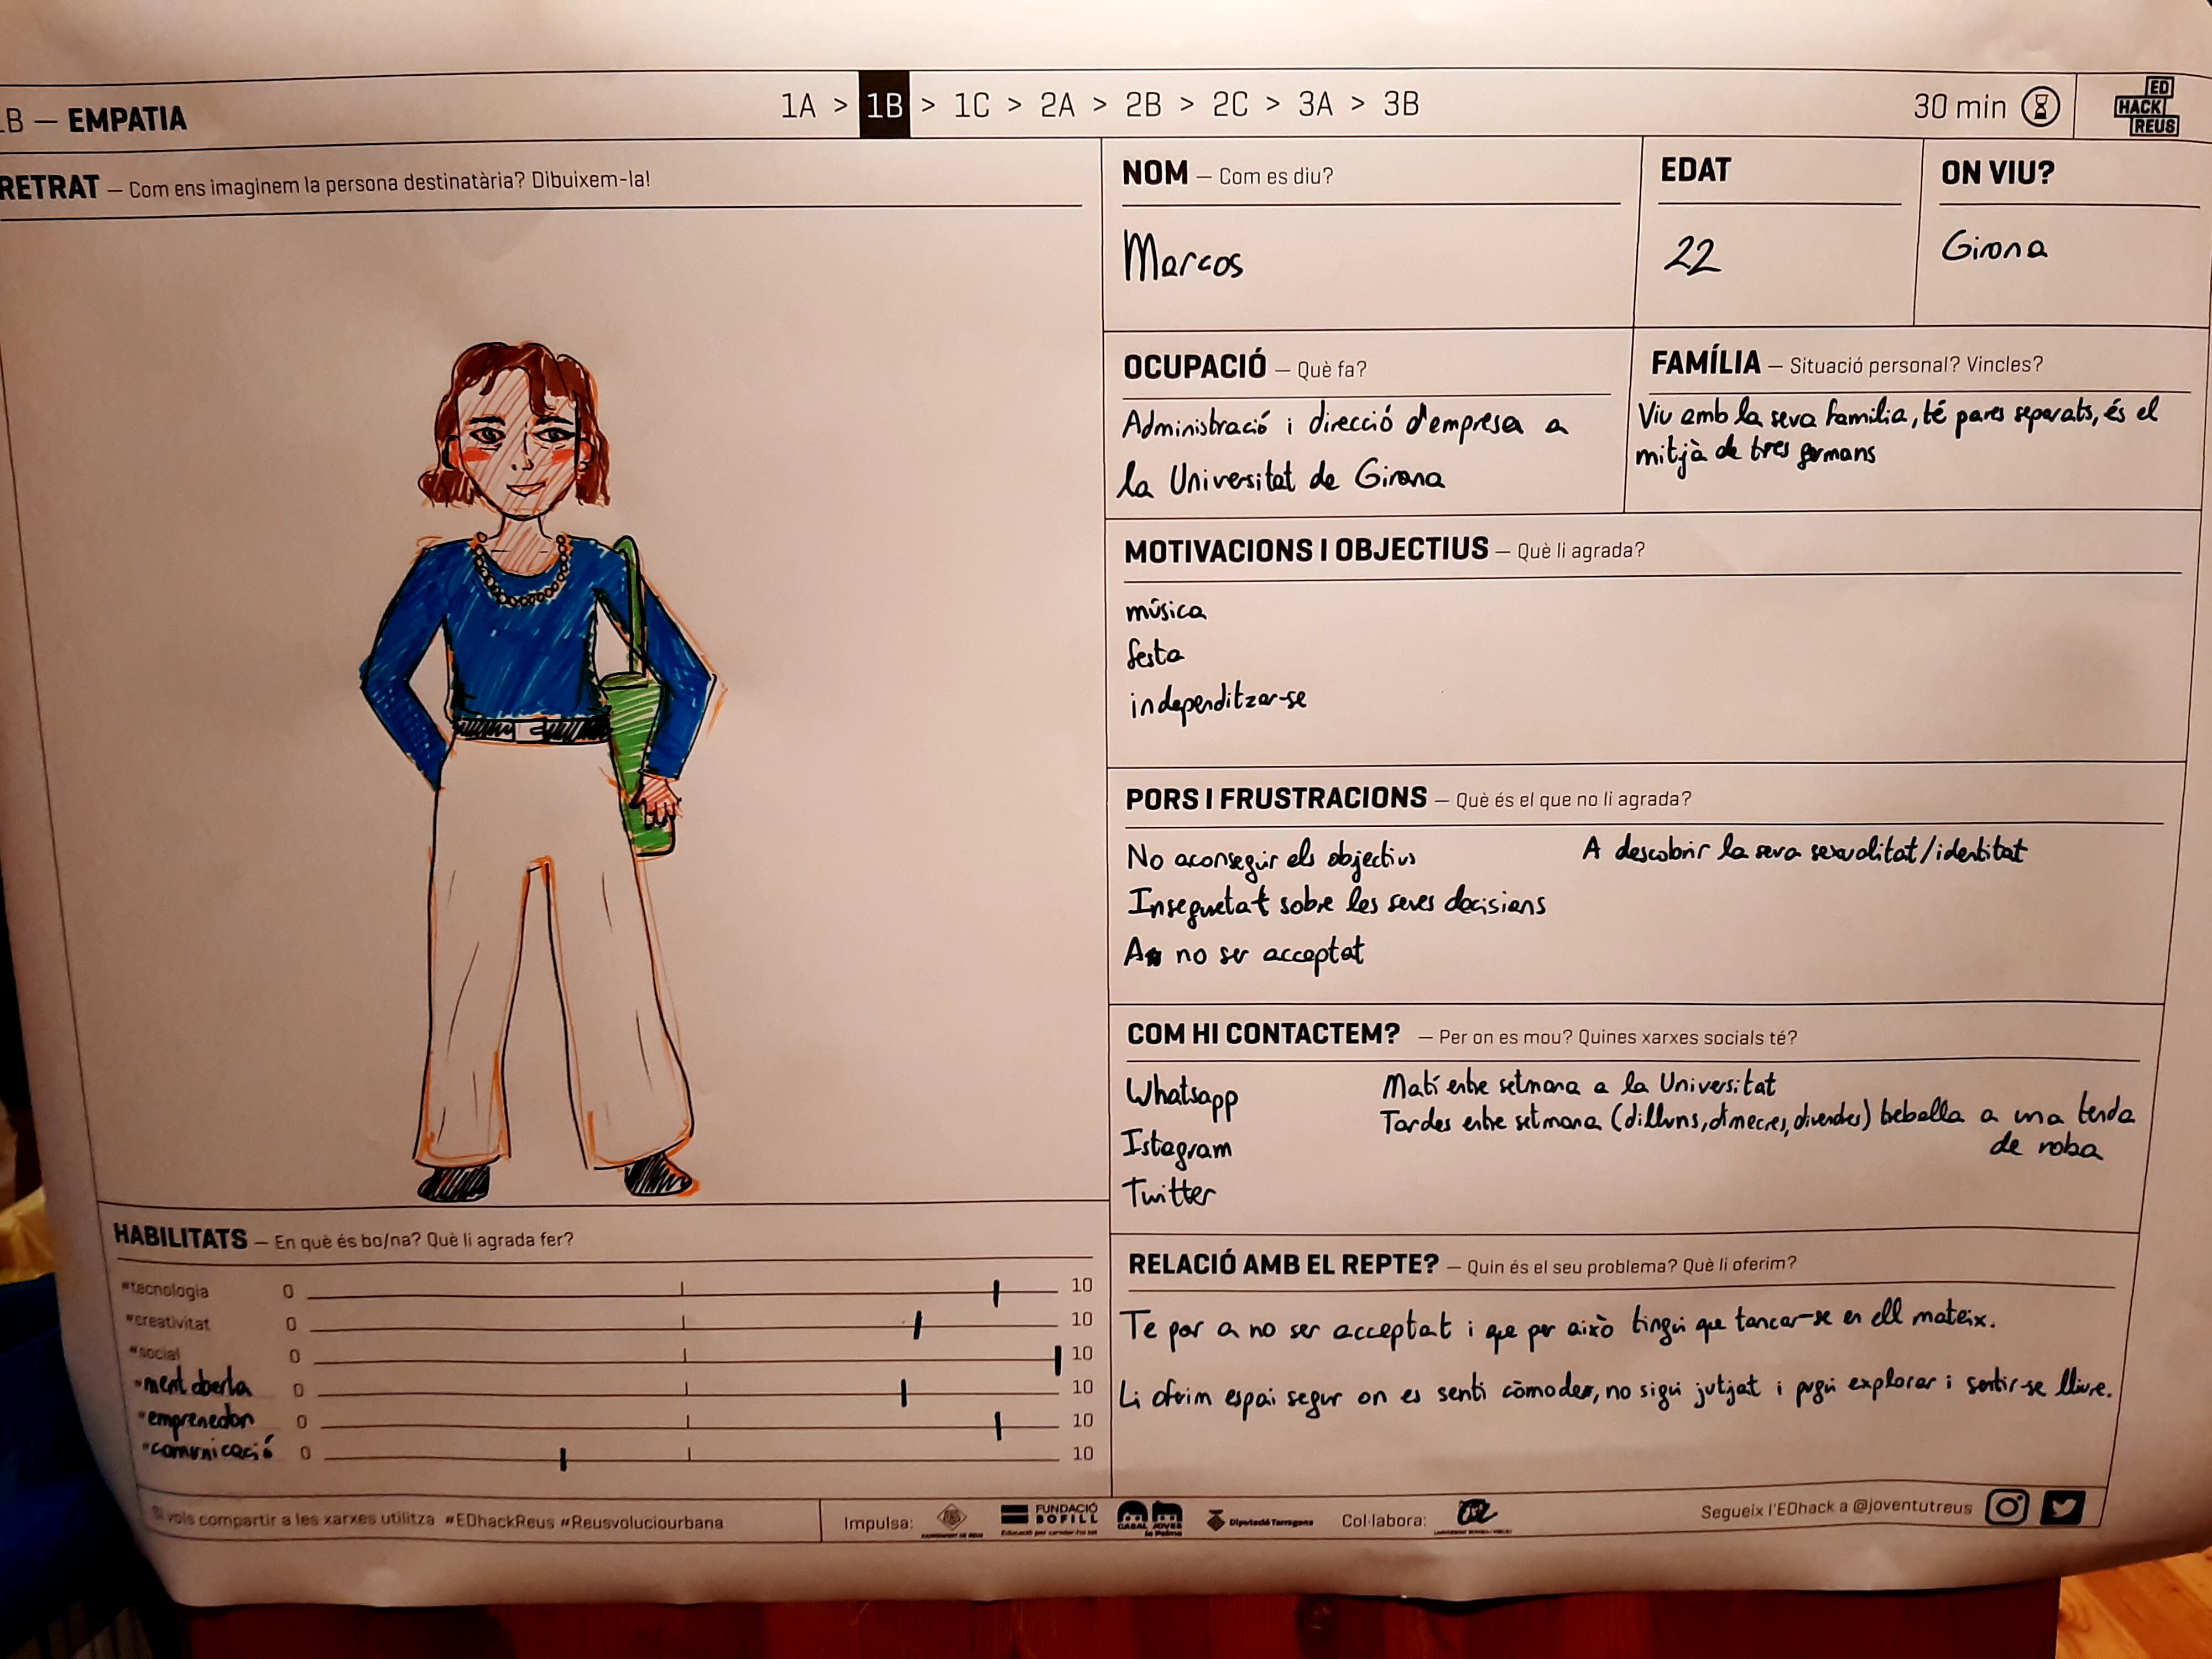 1B — EMPATIA
1A > 1B > 1C > 2A > 2B > 2C > 3A > 3B
30 min
ED
HACK
REUS
RETRAT — Com ens imaginem la persona destinatària? Dibuixem-la!
NOM — Com es diu?
Marcos
EDAT
22
ON VIU?
Girona
OCUPACIÓ — Què fa?
Administració i direcció d'empresa a
la Universitat de Girona
FAMÍLIA — Situació personal? Vincles?
Viu amb la seva família, té pares separats, és el
mitjà de tres germans
MOTIVACIONS I OBJECTIUS — Què li agrada?
música
festa
independitzar-se
PORS I FRUSTRACIONS — Què és el que no li agrada?
No aconseguir els objectius
Inseguretat sobre les seves decisions
A no ser acceptat
A descobrir la seva sexualitat/identitat
COM HI CONTACTEM? — Per on es mou? Quines xarxes socials té?
Whatsapp
Istagram
Twitter
Matí entre setmana a la Universitat
Tardes entre setmana (dilluns, dimecres, divendres) treballa a una tenda
de roba
HABILITATS — En què és bo/na? Què li agrada fer?
#tecnologia 0 10
#creativitat 0 10
#social 0 10
#ment oberta 0 10
#emprenedor 0 10
#comunicació 0 10
RELACIÓ AMB EL REPTE? — Quin és el seu problema? Què li oferim?
Te por a no ser acceptat i que per això tingui que tancar-se en ell mateix.
Li oferim espai segur on es senti còmode, no sigui jutjat i pugui explorar i sentir-se lliure.
Si vols compartir a les xarxes utilitza #EDhackReus #Reusvoluciourbana
Impulsa:
AJUNTAMENT DE REUS
FUNDACIÓ
BOFILL
Educació per canviar-ho tot
CASAL JOVES
la Palma
Diputació Tarragona
Col·labora:
UNIVERSITAT ROVIRA i VIRGILI
Segueix l'EDhack a @joventutreus